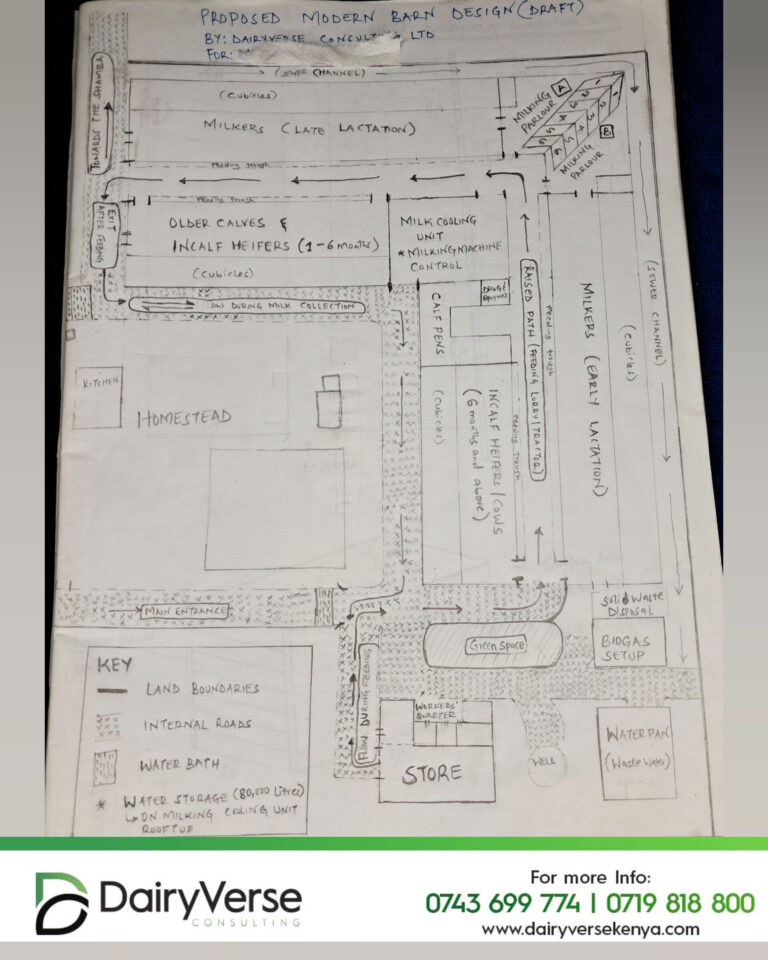 PROPOSED MODERN BARN DESIGN (DRAFT)
BY: DAIRYVERSE LTD
FOR:
(SEWER CHANNEL)
(CUBICLES)
MILKERS (LATE LACTATION)
Feeding trough
MILKING PARLOUR
A
1 2 3 4 5 6
1 2 3 4 5 6
B
MILKING PARLOUR
TOWARDS THE SHAMBA
EXIT
AFTER FEEDING
Feeding trough
OLDER CALVES &
INCALF HEIFERS (1-6 months)
(CUBICLES)
MILK COOLING
UNIT
* MILKING MACHINE
CONTROL
DURING MILK COLLECTION
CALF PENS
DRUGS/
RAISED PATH (FEEDING LORRY/TRACTOR)
Feeding trough
MILKERS (EARLY LACTATION)
(Cubicles)
(SEWER CHANNEL)
(Cubicles)
INCALF HEIFERS/COWS
(6 months and above)
Feeding trough
KITCHEN
HOMESTEAD
MAIN ENTRANCE
Solid Waste
Disposal
BIOGAS
SETUP
Green Space
FLOW DURING FEEDING
WORKERS'
QUARTER
STORE
WELL
WATERPAN
(Waste Water)
KEY
LAND BOUNDARIES
INTERNAL ROADS
WATER BATH
* WATER STORAGE (80,000 Litres)
↳ ON MILKING COOLING UNIT
ROOFTOP
DairyVerse
CONSULTING
For more Info:
0743 699 774 | 0719 818 800
www.dairyversekenya.com